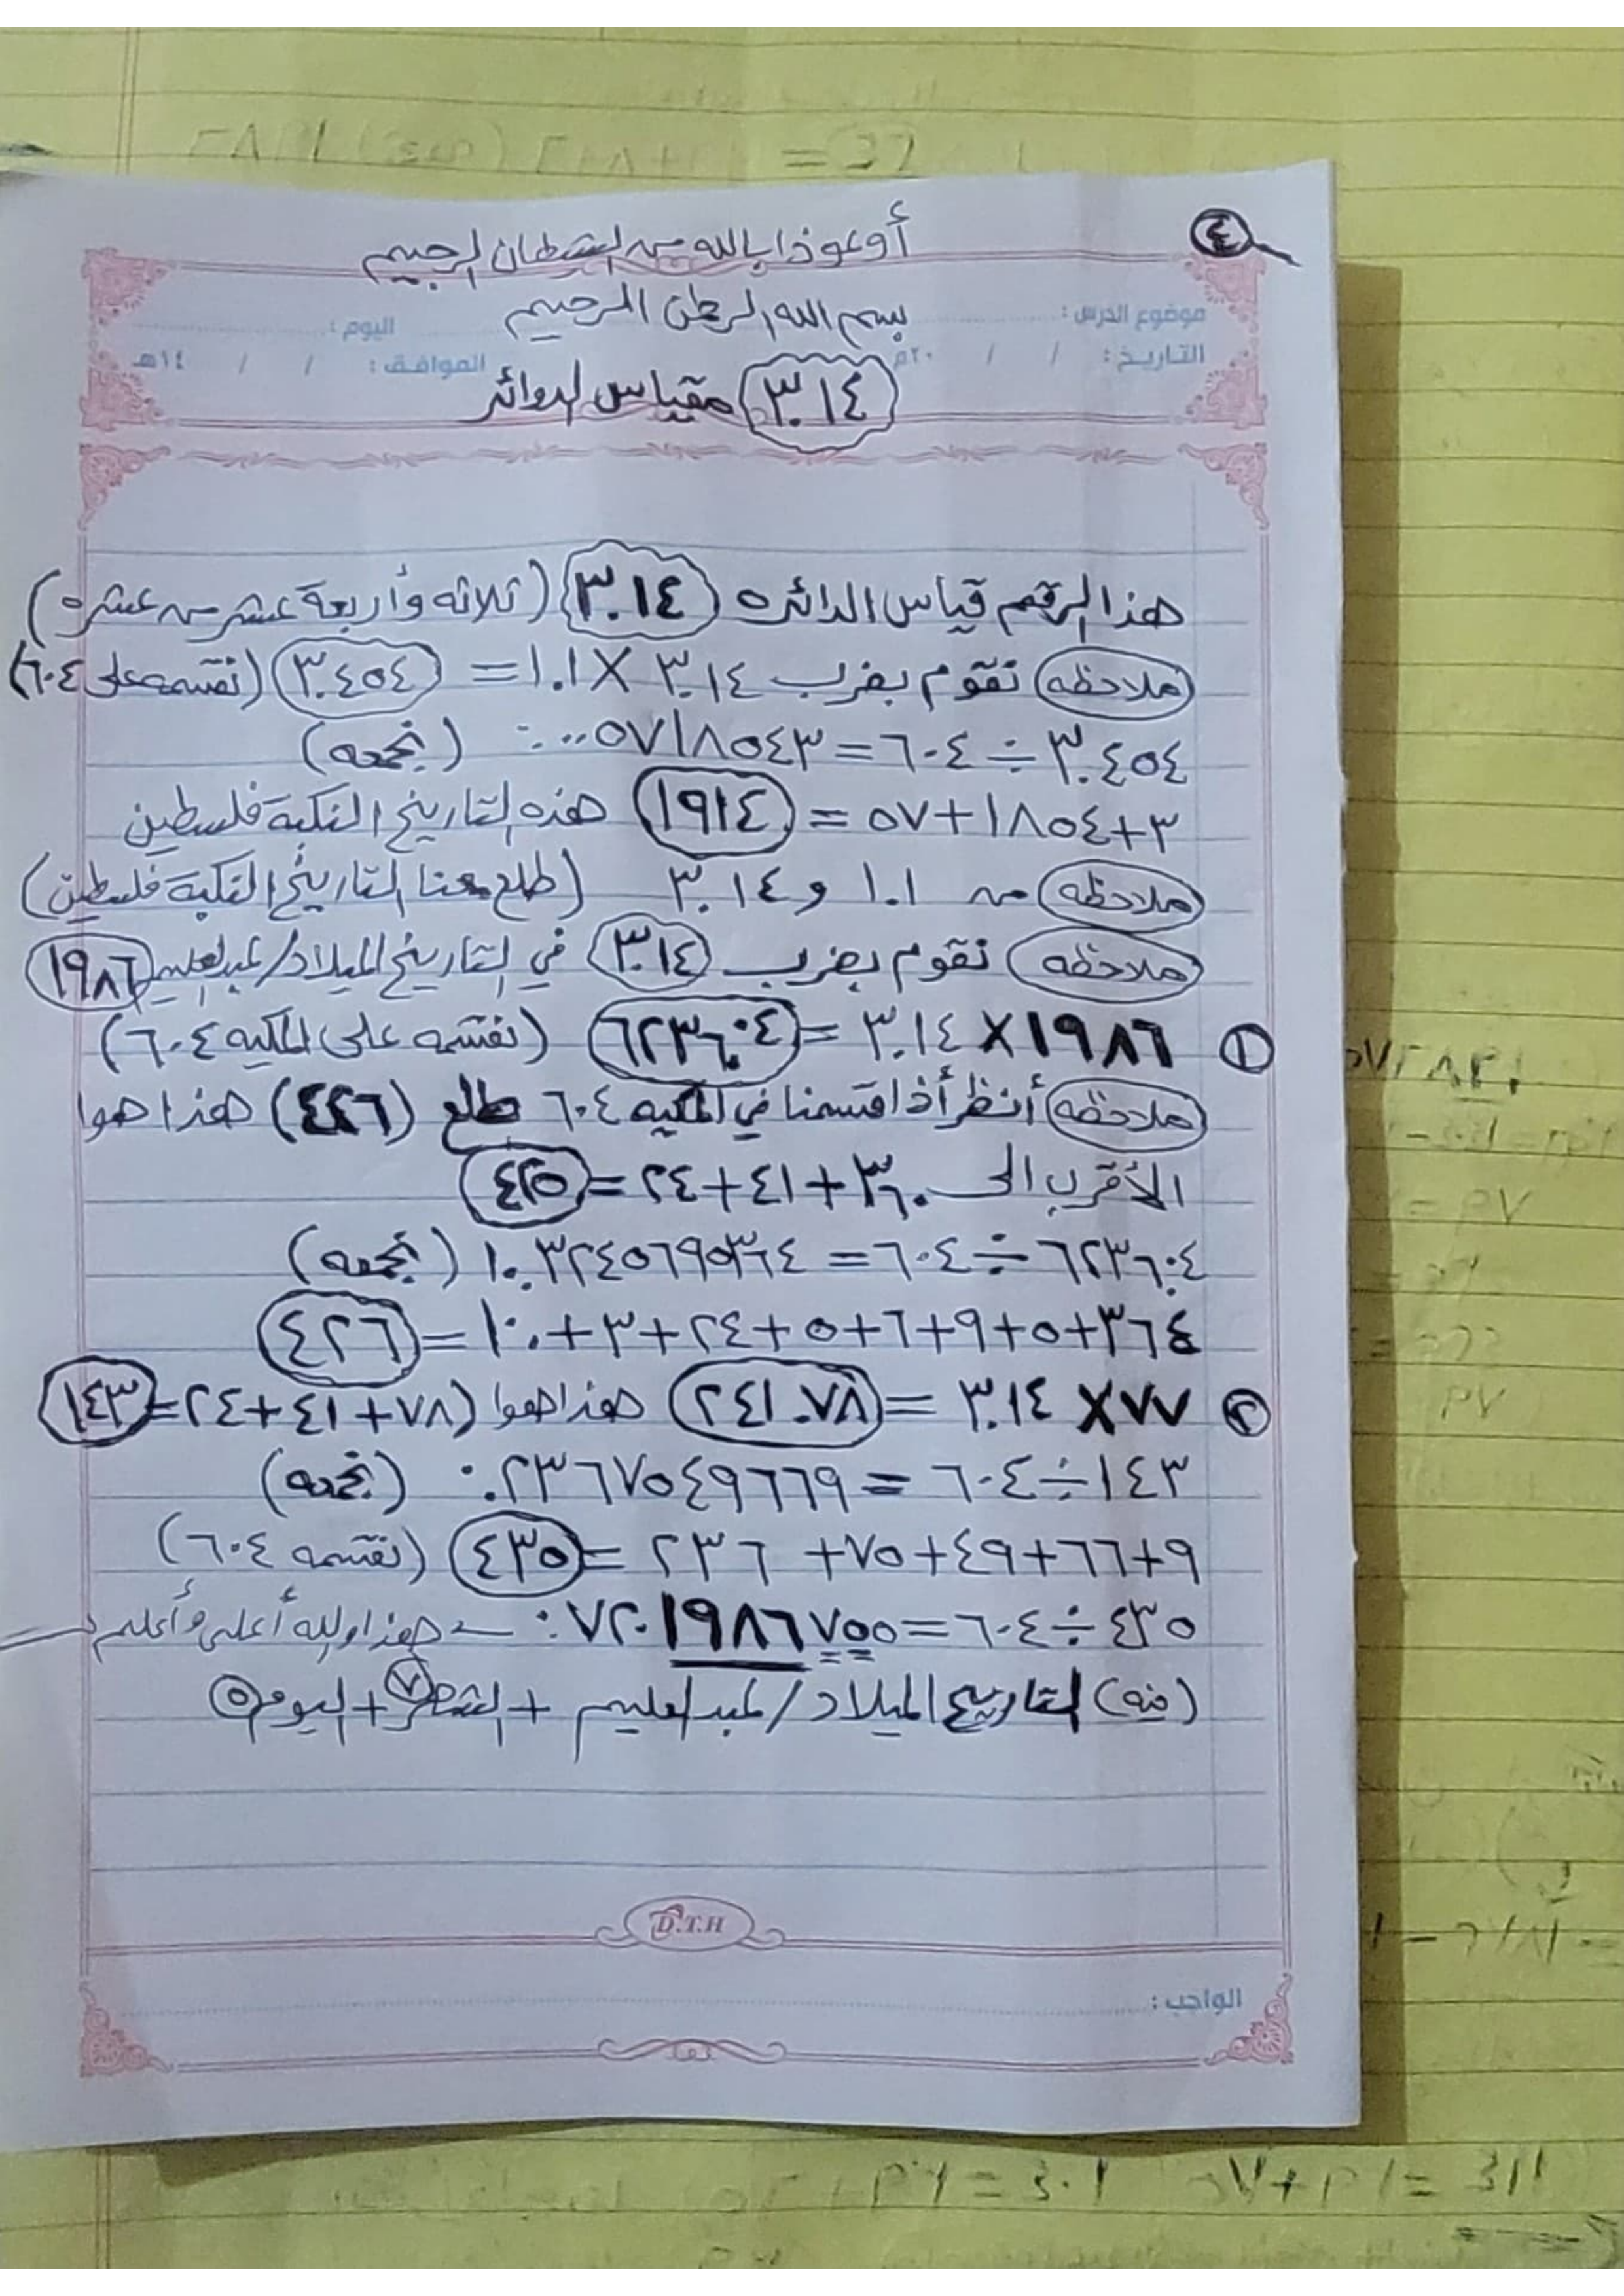 ٤
أوعوذ بالله من الشيطان الرجيم
بسم الله الرحمن الرحيم
موضوع الدرس : اليوم :
التاريخ : / / ٢٠م الموافق : / / ١٤هـ
٣.١٤ مقياس الدوائر
هذا الرقم قياس الدائره ٣.١٤ (ثلاثه وأربعة عشر من عشره)
ملاحظه نقوم بضرب ٣.١٤ × ١.١ = ٣.٤٥٤ (نقسمه على ٦٠٤)
٣.٤٥٤ ÷ ٦٠٤ = ٠.٠٠٥٧١٨٥٤٣ (نجمعه)
٣+١٨٥٤+٥٧ = ١٩١٤ هذه التاريخ النكبة فلسطين
ملاحظه من ١.١ و ٣.١٤ (طلع معنا التاريخ النكبة فلسطين)
ملاحظه نقوم بضرب ٣.١٤ في التاريخ الميلاد/عبدالعليم ١٩٨٦
١ ١٩٨٦ × ٣.١٤ = ٦٢٣٦.٠٤ (نقسمه على المكيه ٦٠٤)
ملاحظه أنظر أذا قسمنا في المكيه ٦٠٤ طلع (٤٢٦) هذا هوا
الأقرب الى ٣٦٠+٤١+٢٤=٤٢٥
٦٢٣٦.٠٤ ÷ ٦٠٤ = ١٠.٣٢٤٥٦٩٥٣٦٤ (نجمعه)
٣٦٤+٥+٩+٦+٥+٢٤+٣+١٠=٤٢٦
٢ ٧٧ × ٣.١٤ = ٢٤١.٧٨ هذا هوا (٧٨+٤١+٢٤=١٤٣
١٤٣ ÷ ٦٠٤ = ٠.٢٣٦٧٥٤٩٦٦٩ (نجمعه)
٩+٦٦+٤٩+٧٥+٢٣٦=٤٣٥ (نقسمه ٦٠٤)
٤٣٥ ÷ ٦٠٤ = ٠.٧٢٠١٩٨٦٧٥٥ هذا والله أعلى وأعلم
(فيه) التاريخ الميلاد/عبدالعليم + الشهر ٧ + اليوم ٥
D.T.H
الواجب :